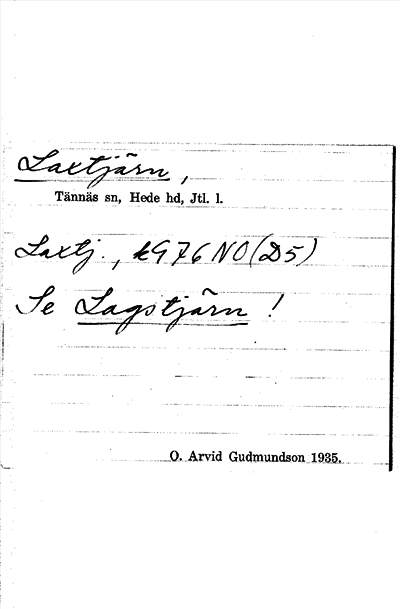 Laxtjärn,
Tännäs sn, Hede hd, Jtl. l.
Laxtj., kG 76 NO (D5)
Se Lagstjärn !
O. Arvid Gudmundson 1935.